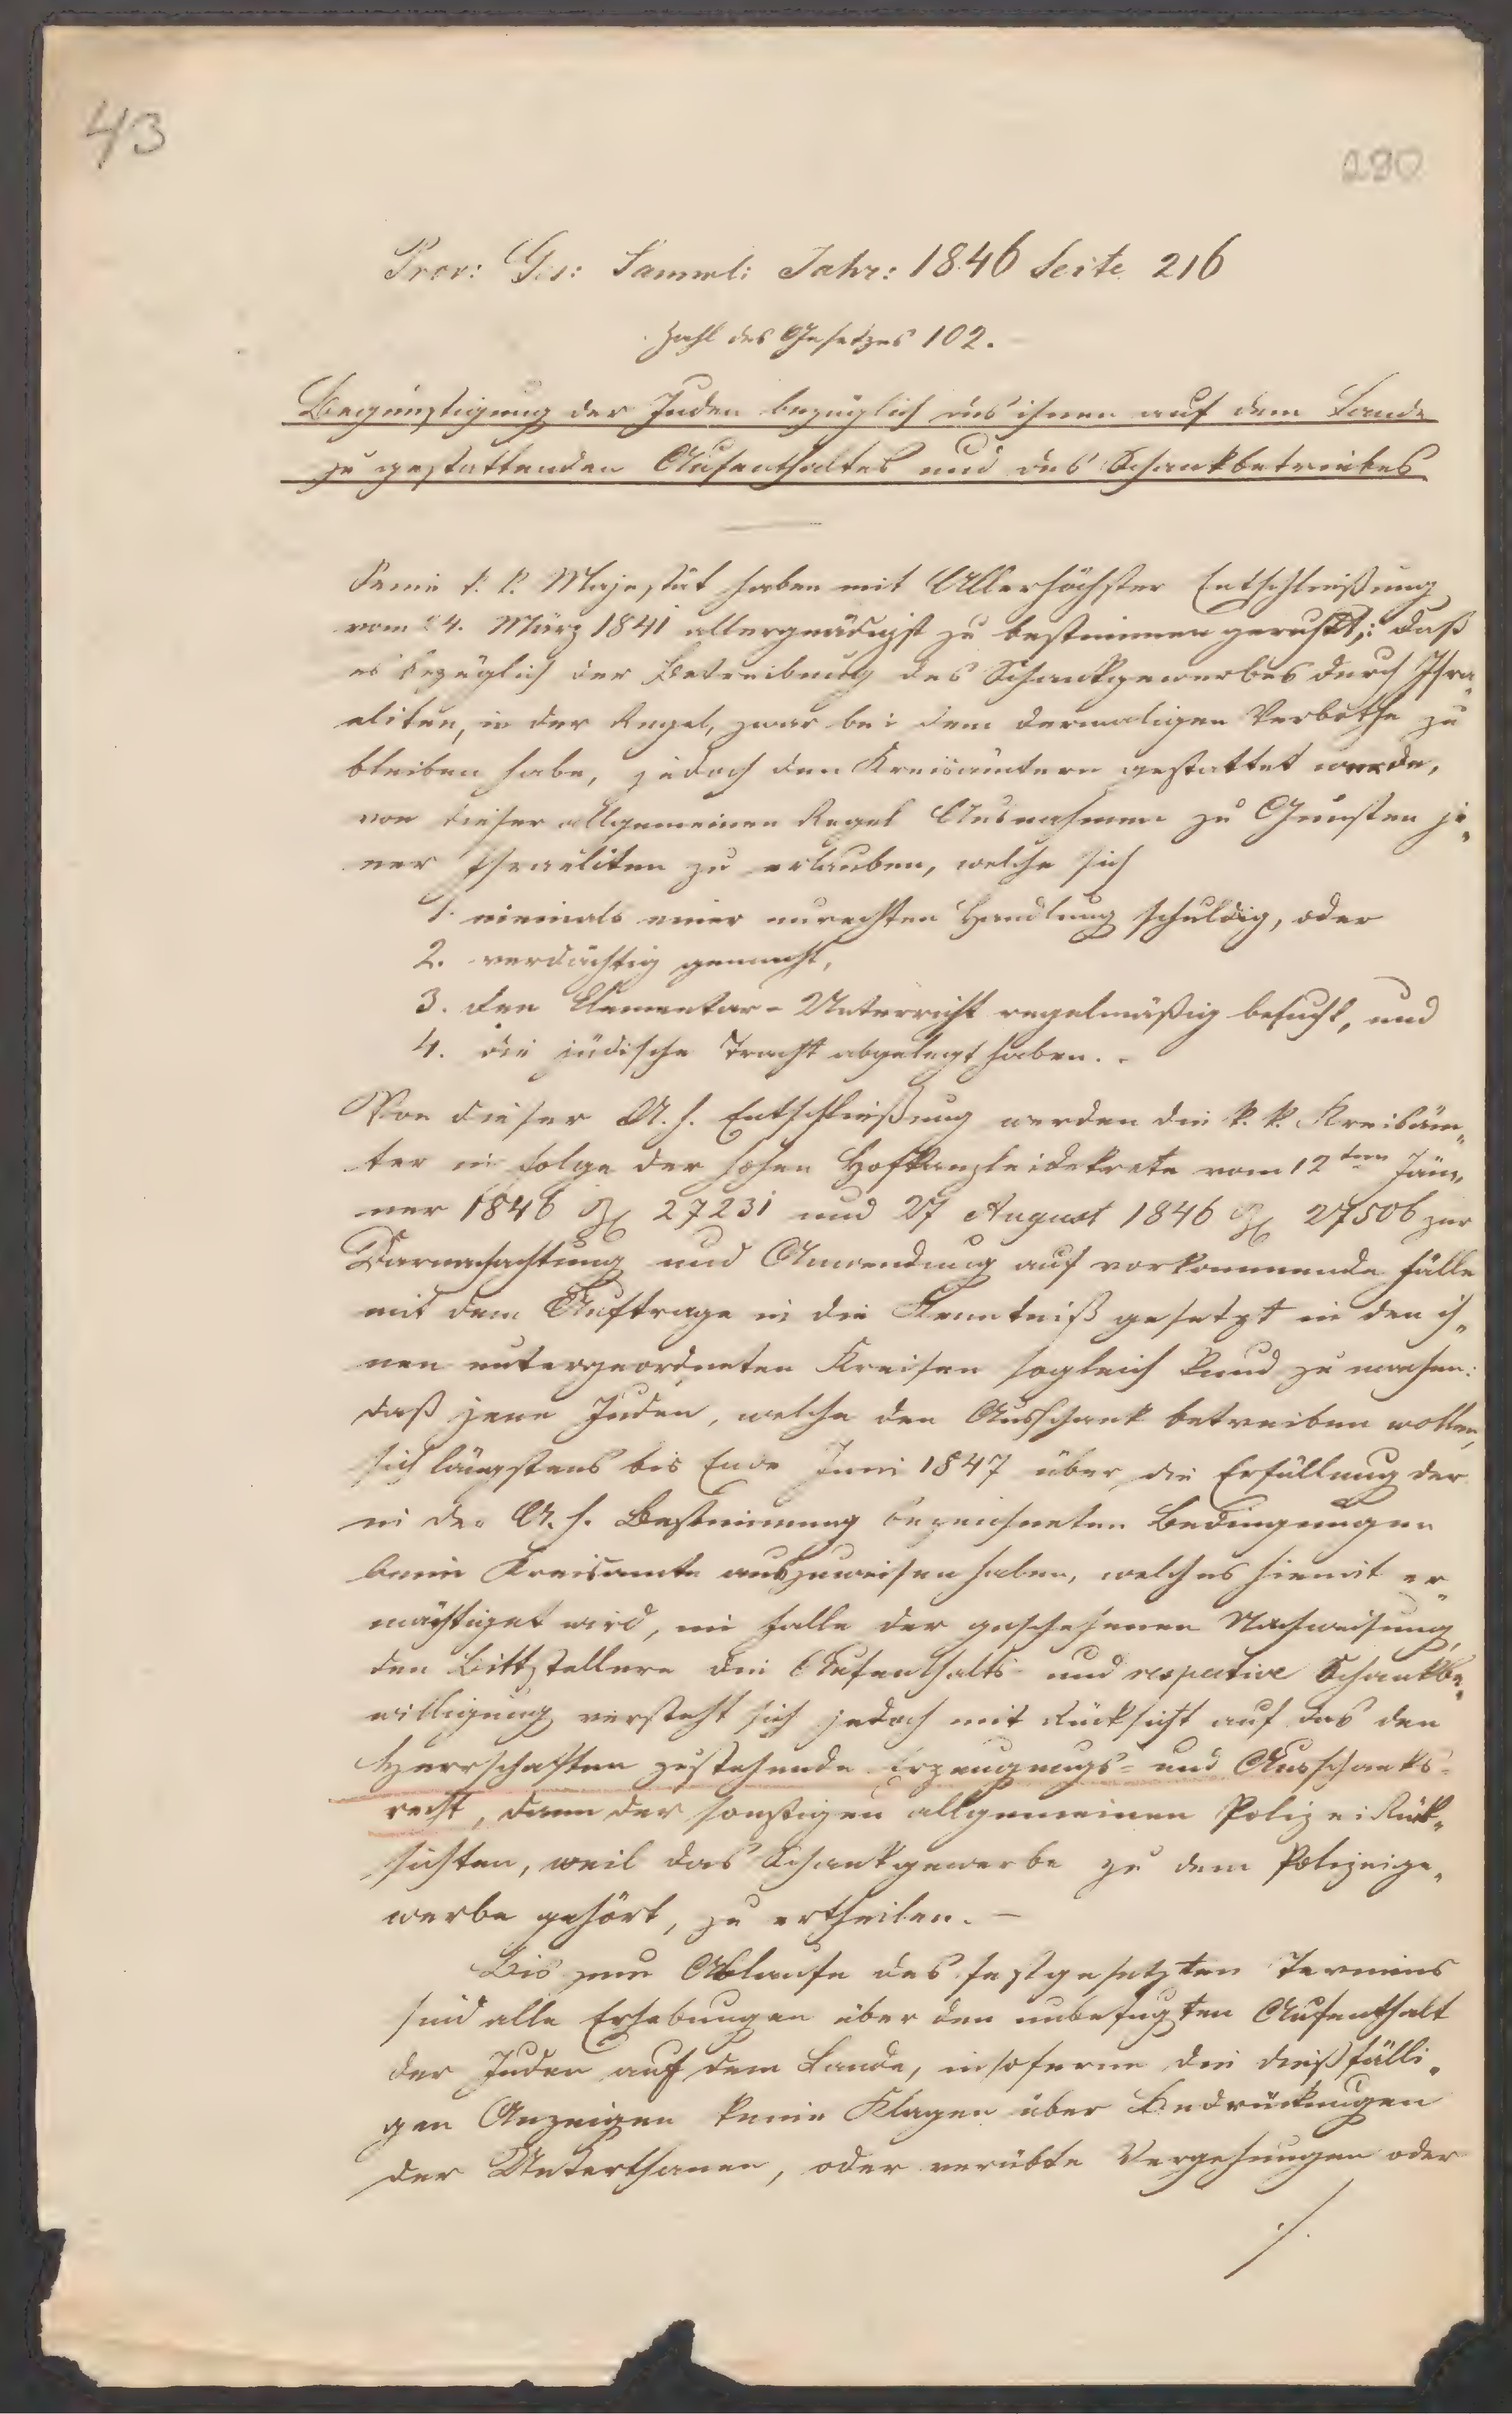 43
290
Prov: Ges: Samml: Jahr: 1846 Seite 216
Zahl des Gesetzes 102.
Begünstigung der Juden bezüglich des ihnen auf dem Lande
zu gestattenden Aufenthaltes und des Schankbetriebes
Seine k. k. Majestät haben mit Allerhöchster Entschließung
vom 24. März 1841 allergnädigst zu bestimmen geruht,: daß
es bezüglich der Betreibung des Schankgewerbes durch Isra„
eliten, in der Regel, zwar bei dem dermaligen Verbothe zu
bleiben habe, jedoch den Kreisämtern gestattet werde,
von dieser allgemeinen Regel Ausnahmen zu Gunsten je„
ner Israeliten zu erlauben, welche sich
1. niemals einer unrechten Handlung schuldig, oder
2. verdächtig gemacht,
3. den Elementar-Unterricht regelmäßig besucht, und
4. die jüdische Tracht abgelegt haben. -
Von dieser A. h. Entschließung werden die k. k. Kreisäm„
ter in Folge der hohen Hofkanzleidekrete vom 12ten Jän„
ner 1846 Z 27231 und 27 August 1846 Z 27506 zur
Darnachachtung und Anwendung auf vorkommende Fälle
mit dem Auftrage in die Kenntniß gesetzt in den ih„
nen untergeordneten Kreisen sogleich kund zu machen:
daß jene Juden, welche den Ausschank betreiben wollen,
sich längstens bis Ende Juni 1847 über die Erfüllung der
in der A. h. Bestimmung bezeichneten Bedingungen
beim Kreisamte auszuweisen haben, welches hiemit er„
mächtiget wird, im Falle der geschehenen Nachweisung,
den Bittstellern die Aufenthalts- und respective Schankbe„
willigung versteht sich jedoch mit Rücksicht auf das den
Herrschaften zustehende Erzeugungs- und Ausschanks-
recht, dann der sonstigen allgemeinen Polizei Rück„
sichten, weil das Schankgewerbe zu dem Polizeige„
werbe gehört, zu ertheilen. —
Bis zum Ablaufe des festgesetzten Termins
sind alle Erhebungen über den unbefugten Aufenthalt
der Juden auf dem Lande, insoferne die dießfälli„
gen Anzeigen keine Klagen über Bedrückungen
der Unterthanen, oder verübte Vergehungen oder
./.